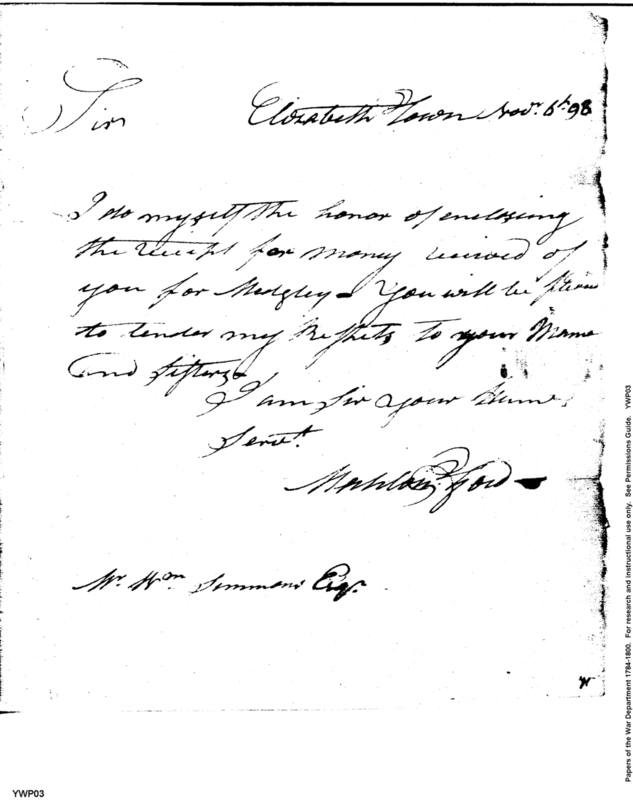 Sir
Elizabeth Town Novr. 6th. 98
I do myself the honor of enclosing
the receipt for money received of
you for Medgley - You will be pleas
to tender my Respets to your Mama
and Sisters -
I am Sir your Hume.
Servt.
Mahlon Ford -
Mr. Wm Simmons Esqr.
Papers of the War Department 1784-1800. For research and instructional use only. See Permissions Guide. YWP03
YWP03